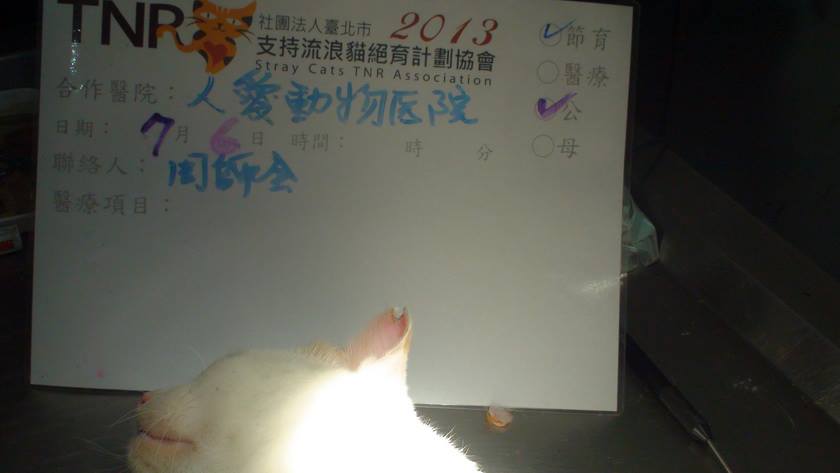 TNR 社團法人臺北市 2013
支持流浪貓絕育計劃協會
Stray Cats TNR Association
節育
醫療
公
母
合作醫院：人愛動物医院
日期：7月6日 時間： 時 分
聯絡人：周師会
醫療項目：